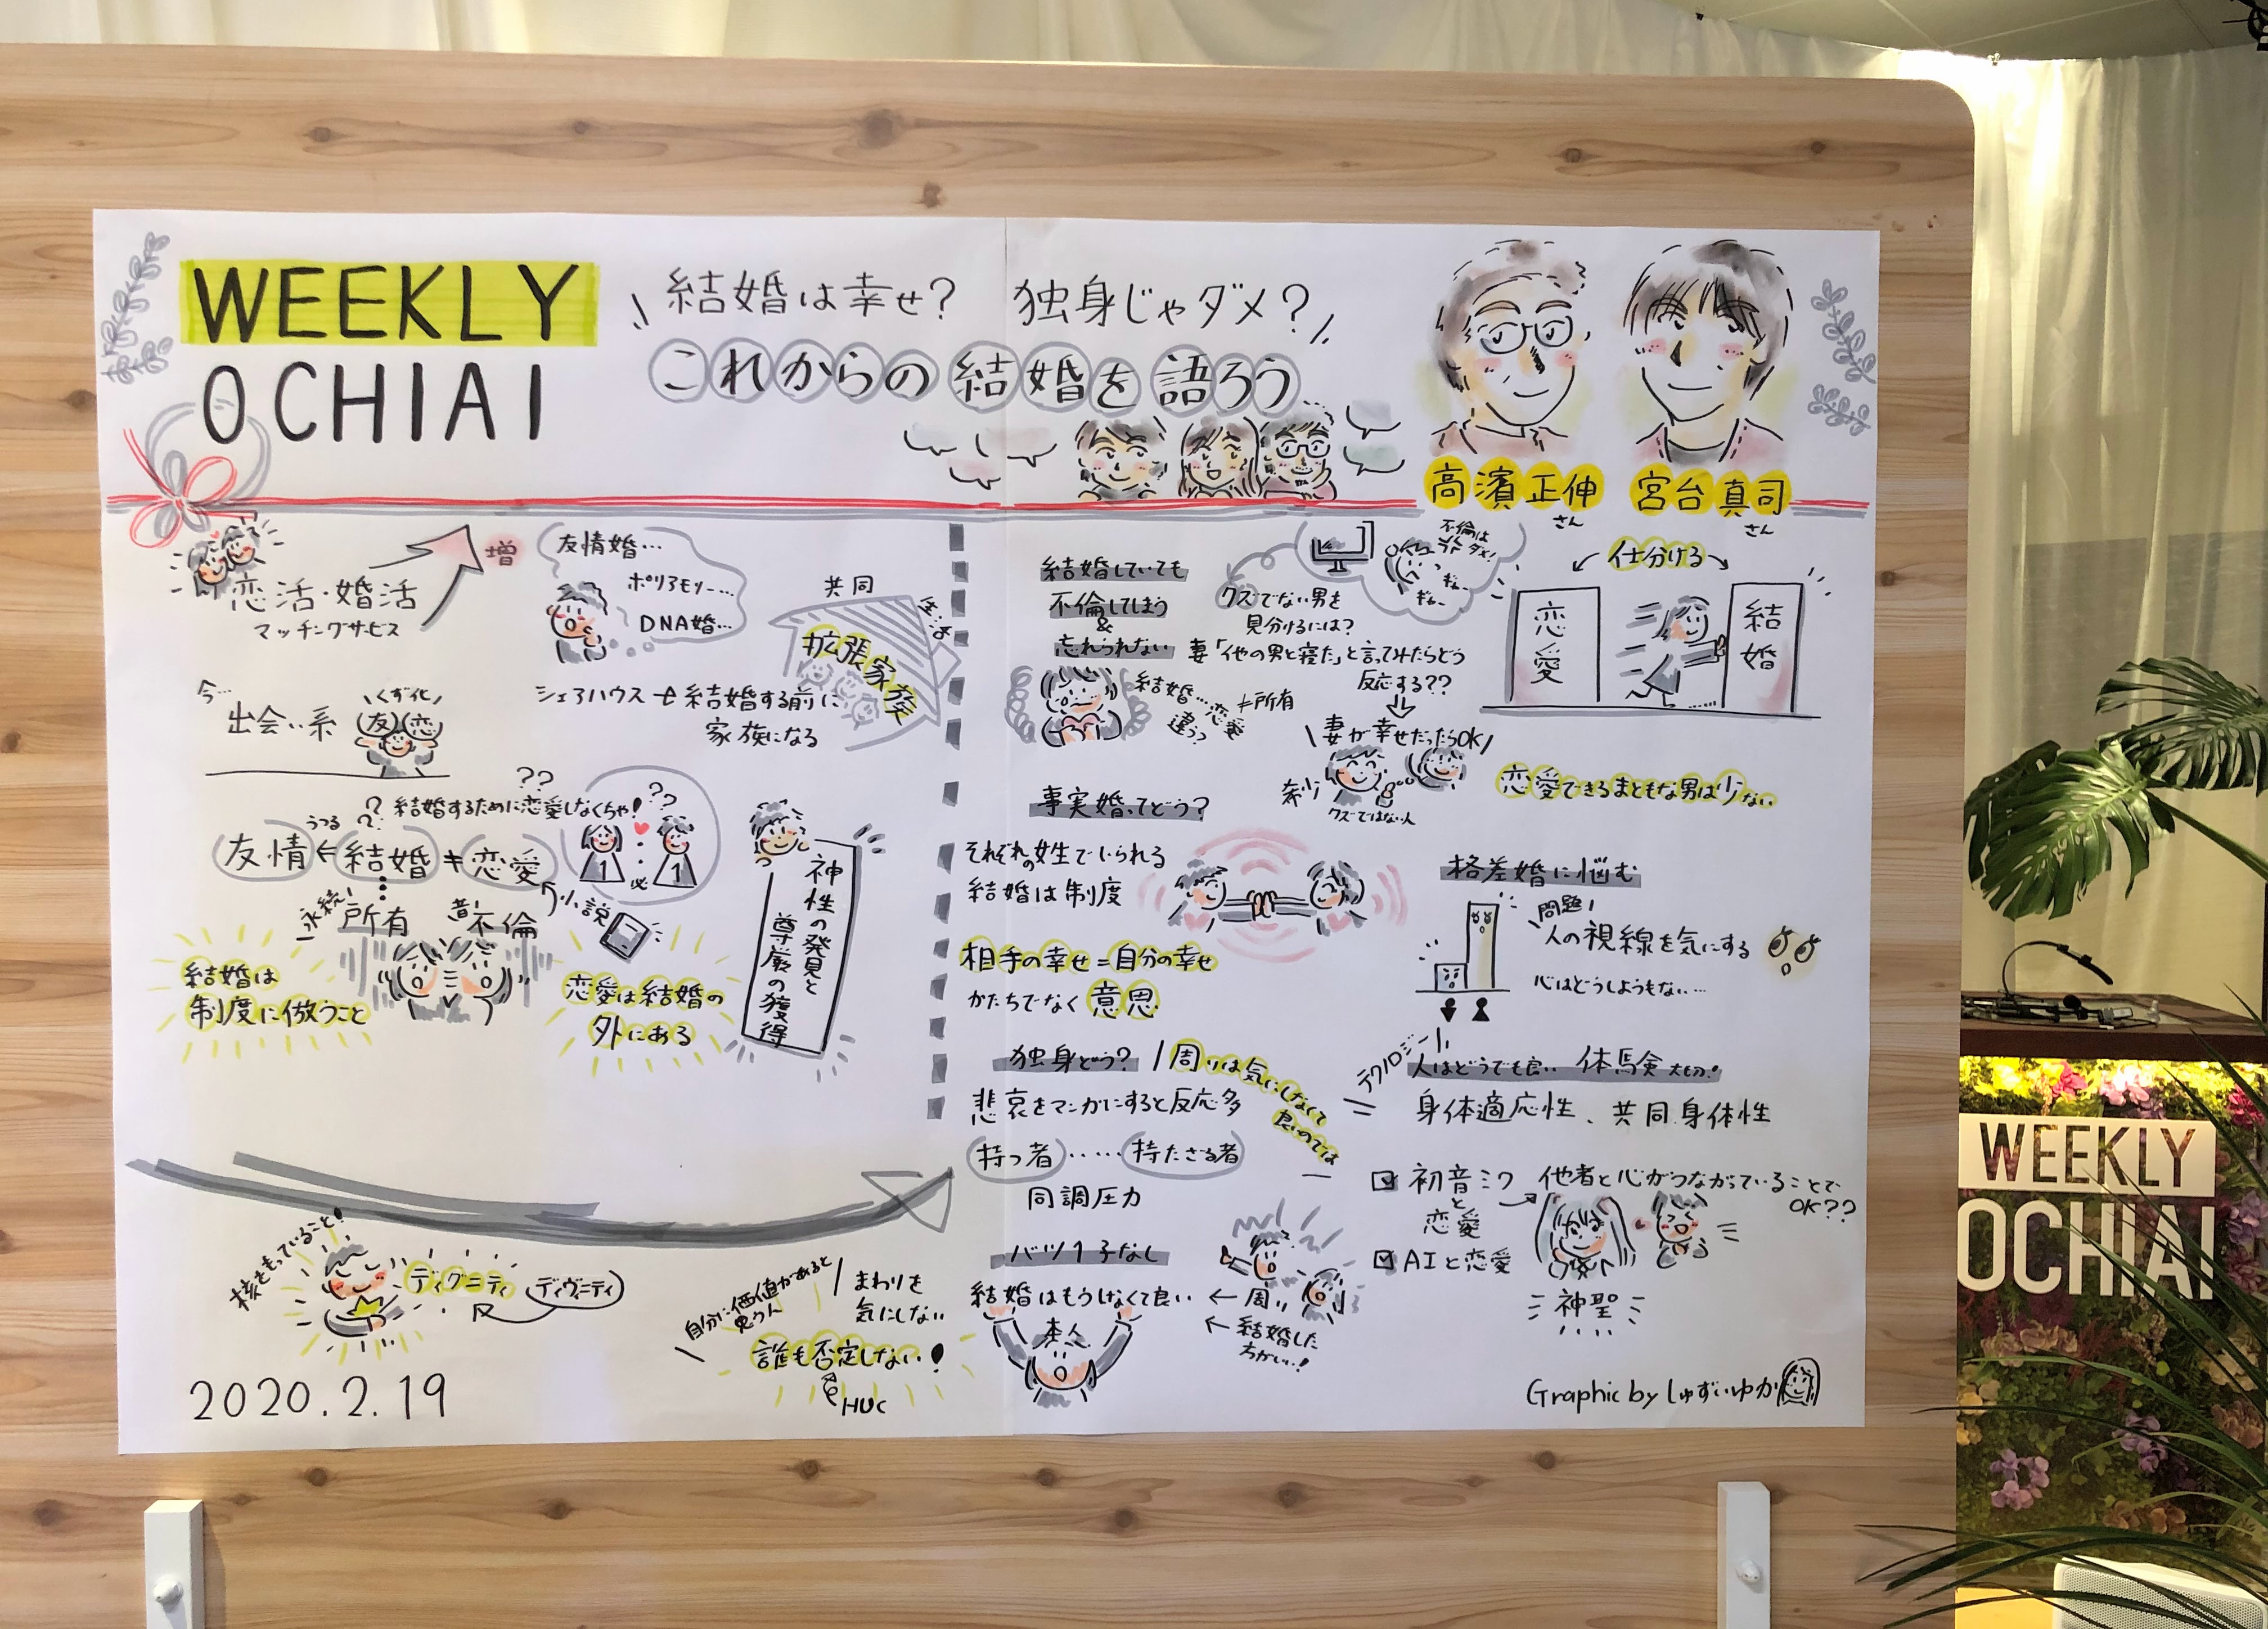 WEEKLY
OCHIAI
結婚は幸せ? 独身じゃダメ?
これからの結婚を語ろう
高濱正伸
さん
宮台真司
さん
恋活・婚活
マッチングサービス
増
友情婚…
ポリアモリー…
DNA婚…
共同
生活
拡張家族
シェアハウス
結婚する前に
家族になる
今…
出会い系
くず化
友 恋
??
結婚するために恋愛しなくちゃ!
??
うつる
友情←結婚≠恋愛
永続!
所有
昔不倫
小説
1 必 1
結婚は
制度に倣うこと
恋愛は結婚の
外にある
神性の発見と
尊厳の獲得
核をもっていること!
ディグニティ
ディヴニティ
自分に価値があると
思う人
まわりを
気にしない
誰も否定しない!
HUC
2020.2.19
結婚していても
不倫してしまう
&
忘れられない
結婚…恋愛
違う?
≠所有
不倫は
ダメ!
ぎゃー
ぎゃー
クズでない男を
見分けるには?
妻「他の男と寝た」と言ってみたらどう
反応する??
妻が幸せだったらOK
クズではない人
仕分ける
恋愛
結婚
恋愛できるまともな男は少ない
事実婚ってどう?
それぞれの姓でいられる
結婚は制度
相手の幸せ=自分の幸せ
かたちでなく意思
格差婚に悩む
問題!
人の視線を気にする
心はどうしようもない…
独身どう?
周りは気にしなくて
良いのでは
悲哀をマンガにすると反応多
持つ者……持たざる者
同調圧力
テクノロジー
人はどうでも良い 体験 大切!
身体適応性、共同身体性
バツ1子なし
結婚はもうしなくて良い
本人
←周り
←結婚した
方がいい!
初音ミク
と
恋愛
AIと恋愛
他者と心がつながっていることで
OK??
神聖
Graphic by しゅずいゆか
WEEKLY
OCHIAI